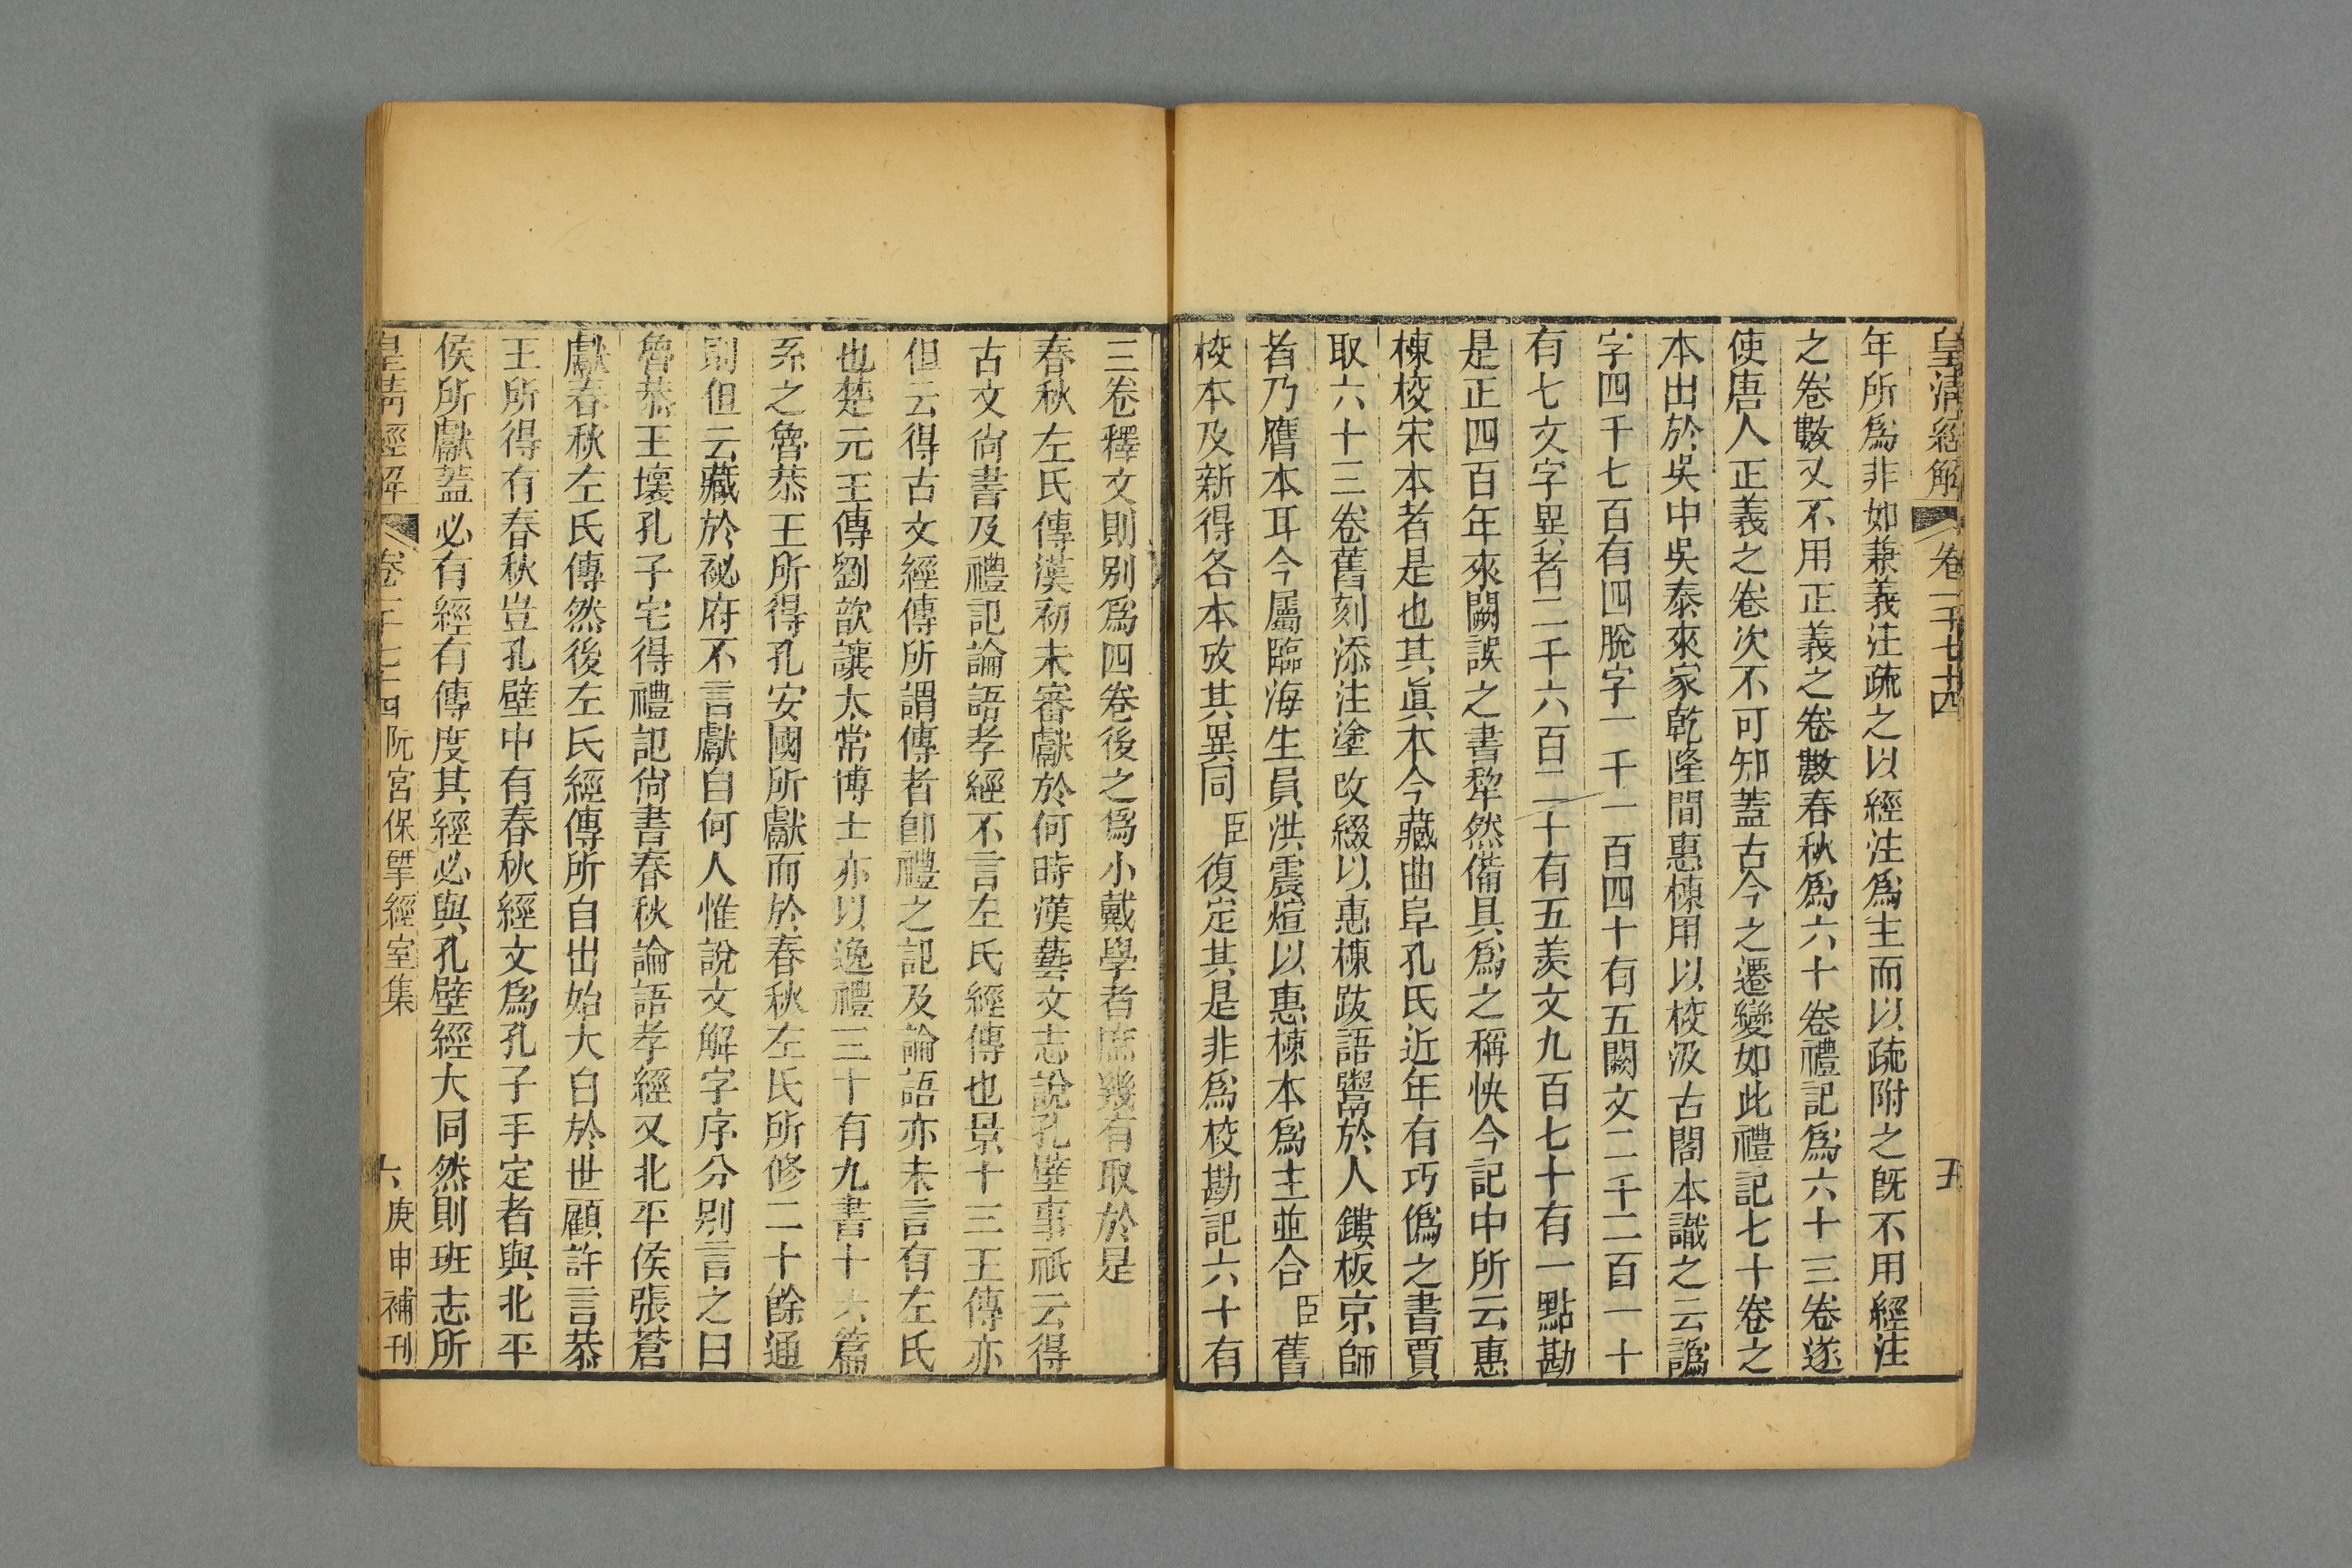 皇清經解 卷一千七十四 五
年所爲非如兼義注疏之以經注爲主而以疏附之旣不用經注
之卷數又不用正義之卷數春秋爲六十卷禮記爲六十三卷遂
使唐人正義之卷次不可知蓋古今之遷變如此禮記七十卷之
本出於吳中吳泰來家乾隆間惠棟用以校汲古閣本識之云譌
字四千七百有四脫字一千一百四十有五闕文二千二百一十
有七文字異者二千六百二十有五羡文九百七十有一點勘
是正四百年來闕誤之書犂然備具爲之稱快今記中所云惠
棟校宋本者是也其眞本今藏曲阜孔氏近年有巧僞之書賈
取六十三卷舊刻添注塗改綴以惠棟跋語鬻於人鏤板京師
者乃贋本耳今屬臨海生員洪震煊以惠棟本爲主並合臣舊
校本及新得各本攷其異同臣復定其是非爲校勘記六十有
三卷釋文則别爲四卷後之爲小戴學者庶幾有取於是
春秋左氏傳漢初未審獻於何時漢藝文志說孔壁事祇云得
古文尙書及禮記論語孝經不言左氏經傳也景十三王傳亦
但云得古文經傳所謂傳者卽禮之記及論語亦未言有左氏
也楚元王傳劉歆讓太常博士亦以逸禮三十有九書十六篇
系之魯恭王所得孔安國所獻而於春秋左氏所修二十餘通
則但云藏於祕府不言獻自何人惟說文解字序分别言之曰
魯恭王壞孔子宅得禮記尙書春秋論語孝經又北平侯張蒼
獻春秋左氏傳然後左氏經傳所自出始大白於世顧許言恭
王所得有春秋豈孔壁中有春秋經文爲孔子手定者與北平
侯所獻蓋必有經有傳度其經必與孔壁經大同然則班志所
皇清經解 卷一千七十四 阮宮保揅經室集 六 庚申補刊